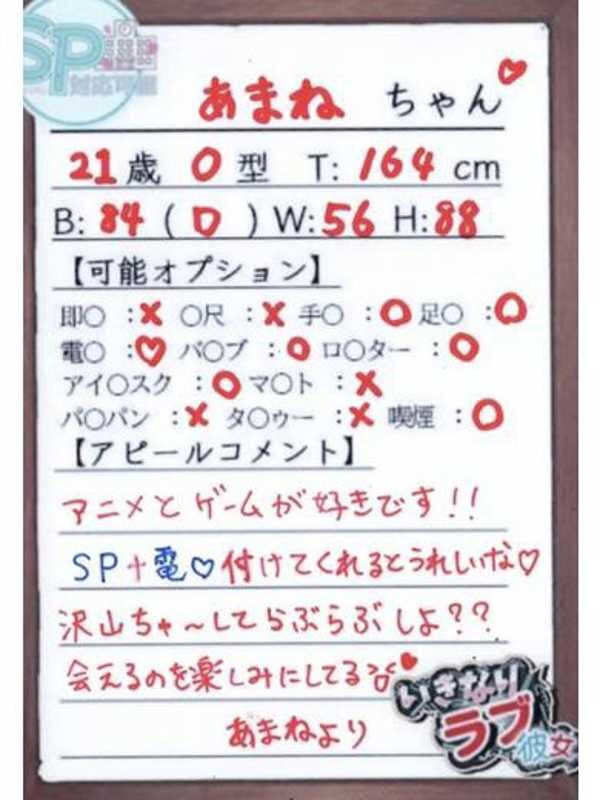 SP
対応可能
あまね ちゃん♡
21歳 O型 T: 164 cm
B: 84 ( D ) W:56 H:88
【可能オプション】
即〇 :× 〇尺 :× 手〇 :〇 足〇 :〇
電〇 :♡ バ〇ブ :〇 ロ〇ター :〇
アイ〇スク :〇 マ〇ト :×
パ〇パン :× タ〇ゥー :× 喫煙 :〇
【アピールコメント】
アニメとゲームが好きです!!
SP+電♡付けてくれるとうれしいな♡
沢山ちゅ〜してらぶらぶしよ??
会えるのを楽しみにしてる
あまねより
いきなり
ラブ彼女